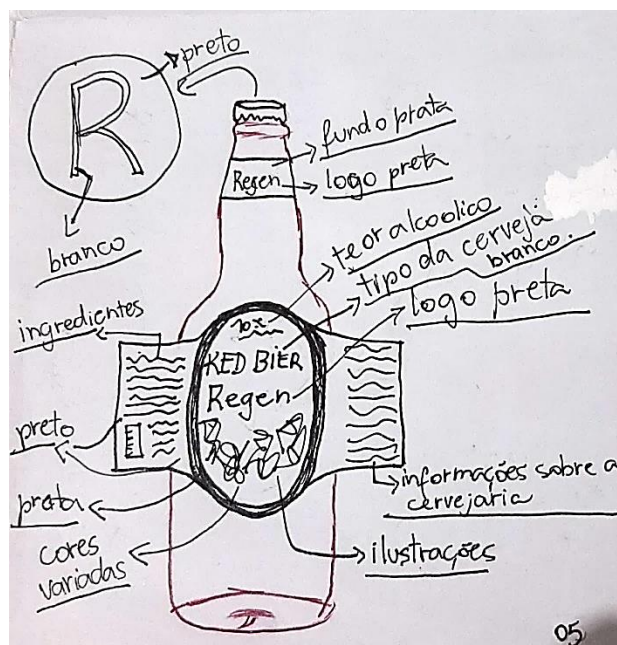 R
preto
branco
fundo prata
Regen
logo preta
teor alcoolico
tipo da cerveja
branco.
logo preta
ingredientes
RED BIER
Regen
preto
prata
cores
variadas
informações sobre a
cervejaria
ilustrações
05